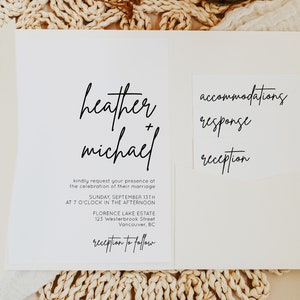 heather
+
michael
kindly request your presence at
the celebration of their marriage
SUNDAY, SEPTEMBER 13TH
AT 7 O'CLOCK IN THE AFTERNOON
FLORENCE LAKE ESTATE
123 Westerbrook Street
Vancouver, BC
reception to follow
accommodations
response
reception